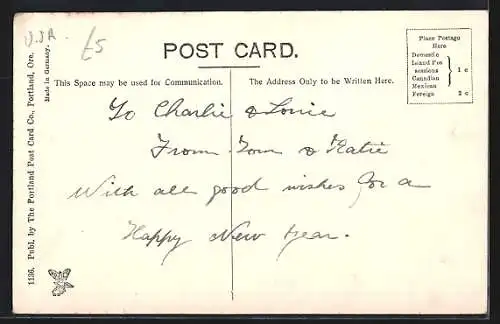 U.S.A. £5
POST CARD.
Place Postage
Here
Domestic
Island Pos
sessions
Canadian
Mexican
1 c
Foreign 2 c
This Space may be used for Communication.
The Address Only to be Written Here.
To Charlie & Louie
From Tom & Katie
With all good wishes for a
Happy New Year.
1136. Publ. by The Portland Post Card Co., Portland, Ore.
Made in Germany.